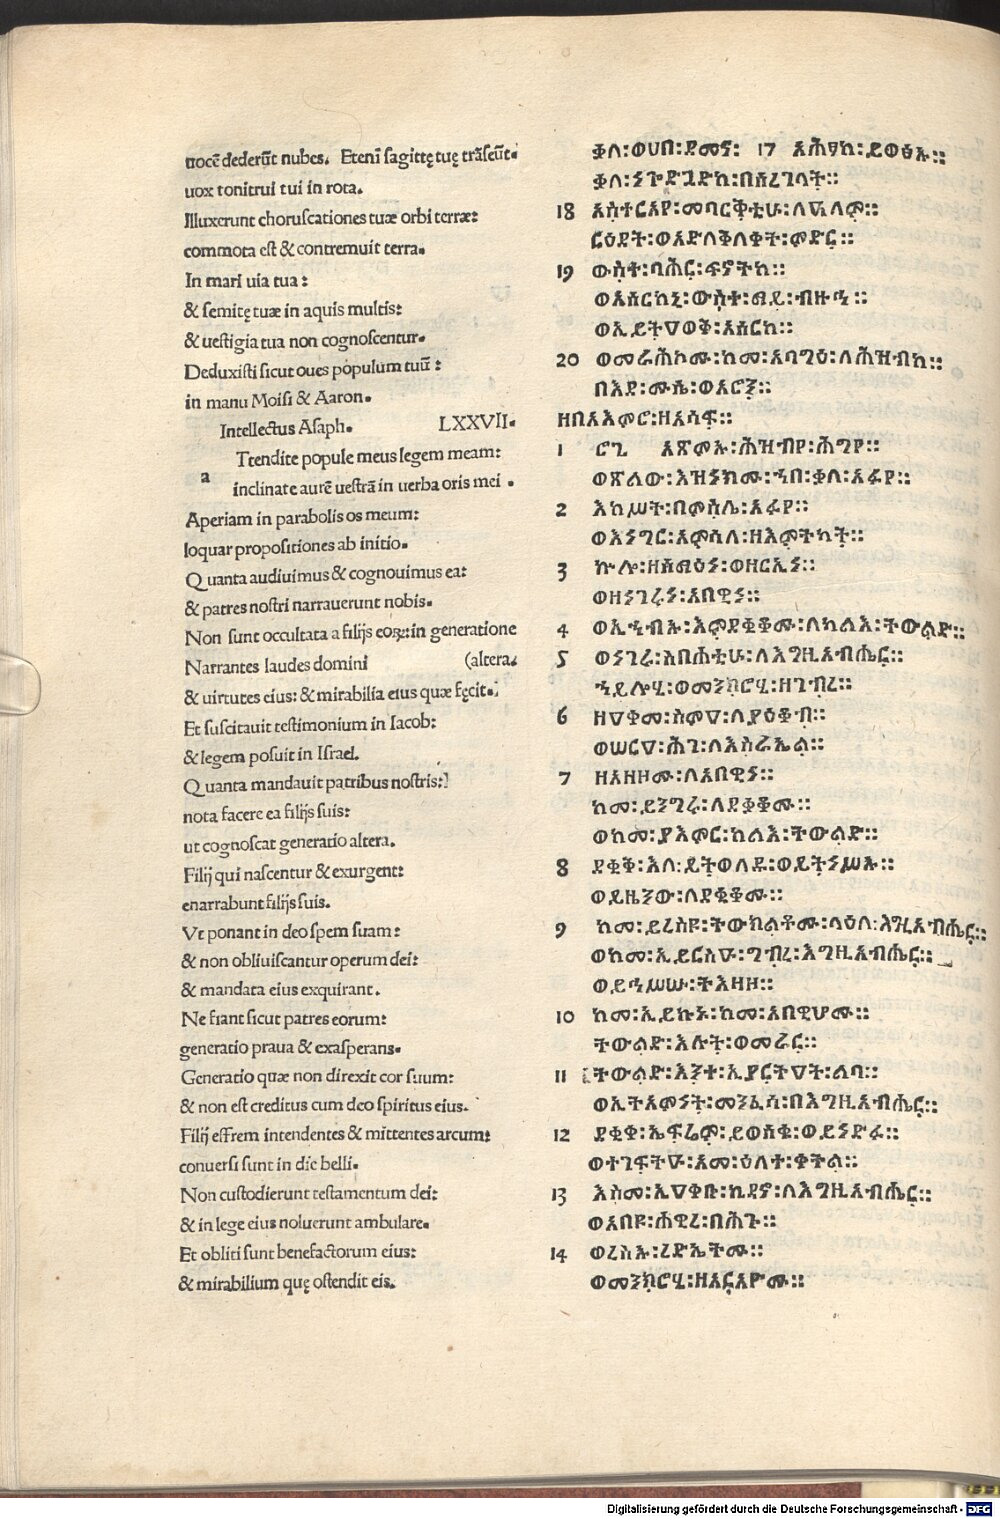 uocē dederūt nubes. Etenī sagittę tuę trāseūt.
uox tonitrui tui in rota.
Illuxerunt choruſcationes tuæ orbi terræ:
commota eſt & contremuit terra.
In mari uia tua:
& ſemitę tuæ in aquis multis:
& ueſtigia tua non cognoſcentur.
Deduxiſti ſicut oues populum tuū:
in manu Moiſi & Aaron.
Intellectus Aſaph. LXXVII.
a Ttendite popule meus legem meam:
inclinate aurē ueſtrā in uerba oris mei.
Aperiam in parabolis os meum:
loquar propoſitiones ab initio.
Quanta audiuimus & cognouimus ea:
& patres noſtri narrauerunt nobis.
Non ſunt occultata a filijs eoꝝ: in generatione
Narrantes laudes domini (altera.
& uirtutes eius: & mirabilia eius quæ fęcit.
Et ſuſcitauit teſtimonium in Iacob:
& legem poſuit in Iſrael.
Quanta mandauit patribus noſtris:
nota facere ea filijs ſuis:
ut cognoſcat generatio altera.
Filij qui naſcentur & exurgent:
enarrabunt filijs ſuis.
Vt ponant in deo ſpem ſuam:
& non obliuiſcantur operum dei:
& mandata eius exquirant.
Ne fiant ſicut patres eorum:
generatio praua & exaſperans.
Generatio quæ non direxit cor ſuum:
& non eſt creditus cum deo ſpiritus eius.
Filij effrem intendentes & mittentes arcum:
conuerſi ſunt in die belli.
Non cuſtodierunt teſtamentum dei:
& in lege eius noluerunt ambulare.
Et obliti ſunt benefactorum eius:
& mirabilium quę oſtendit eis.
ቃለ፡ወሀበ፡ደመና፡ 17 አሕፃከ፡ይወፅኡ።
ቃለ፡ነጐድጓድከ፡በሰረገላት።
18 አስተርአየ፡መባርቅቲሁ፡ለዓለም።
ርዕደት፡ወአድለቅለቀት፡ምድር።
19 ውስተ፡ባሕር፡ፍኖትከ።
ወአሰርከኒ፡ውስተ፡ማይ፡ብዙኅ።
ወኢይትዐወቅ፡አሰርከ።
20 ወመራሕኮሙ፡ከመ፡አባግዕ፡ለሕዝብከ።
በእደ፡ሙሴ፡ወአሮን።
ዘበአእምሮ፡ዘአሳፍ።
1 ፸፯ አጽምኡ፡ሕዝብየ፡ሕግየ።
ወጽልው፡እዝነክሙ፡ኀበ፡ቃለ፡አፉየ።
2 እከሥት፡በምሳሌ፡አፉየ።
ወእነግር፡አምሳለ፡ዘእምትካት።
3 ኵሎ፡ዘሰማዕነ፡ወዘርኢነ።
ወዘነገሩነ፡አበዊነ።
4 ወኢኀብኡ፡እምደቂቆሙ፡ለካልእ፡ትውልድ።
5 ወነገሩ፡ስብሐቲሁ፡ለእግዚአብሔር።
ኀይሎሂ፡ወመንክሮሂ፡ዘገብረ።
6 ዘዐቀመ፡ስምዐ፡ለያዕቆብ።
ወሠርዐ፡ሕገ፡ለእስራኤል።
7 ዘአዘዞሙ፡ለአበዊነ።
ከመ፡ይንግሩ፡ለደቂቆሙ።
ወከመ፡ያእምር፡ካልእ፡ትውልድ።
8 ደቂቅ፡እለ፡ይትወለዱ፡ወይትነሥኡ።
ወይዜንው፡ለደቂቆሙ።
9 ከመ፡ይረስዩ፡ትውክልቶሙ፡ላዕለ፡እግዚአብሔር።
ወከመ፡ኢይርስዑ፡ግብረ፡እግዚአብሔር።
ወይኅሥሡ፡ትእዛዞ።
10 ከመ፡ኢይኩኑ፡ከመ፡አበዊሆሙ።
ትውልድ፡እሉት፡ወመራር።
11 ትውልድ፡እንተ፡ኢያርትዐት፡ልባ።
ወኢትአምነት፡መንፈሳ፡በእግዚአብሔር።
12 ደቂቀ፡ኤፍሬም፡ይወስቁ፡ወይነድፉ።
ወተገፍትዑ፡አመ፡ዕለተ፡ቀትል።
13 እስመ፡ኢዐቀቡ፡ኪዳኖ፡ለእግዚአብሔር።
ወአበዩ፡ሐዊረ፡በሕጉ።
14 ወረስኡ፡ረድኤቶሙ።
ወመንክሮሂ፡ዘአርአዮሙ።
Digitalisierung gefördert durch die Deutsche Forschungsgemeinschaft - DFG